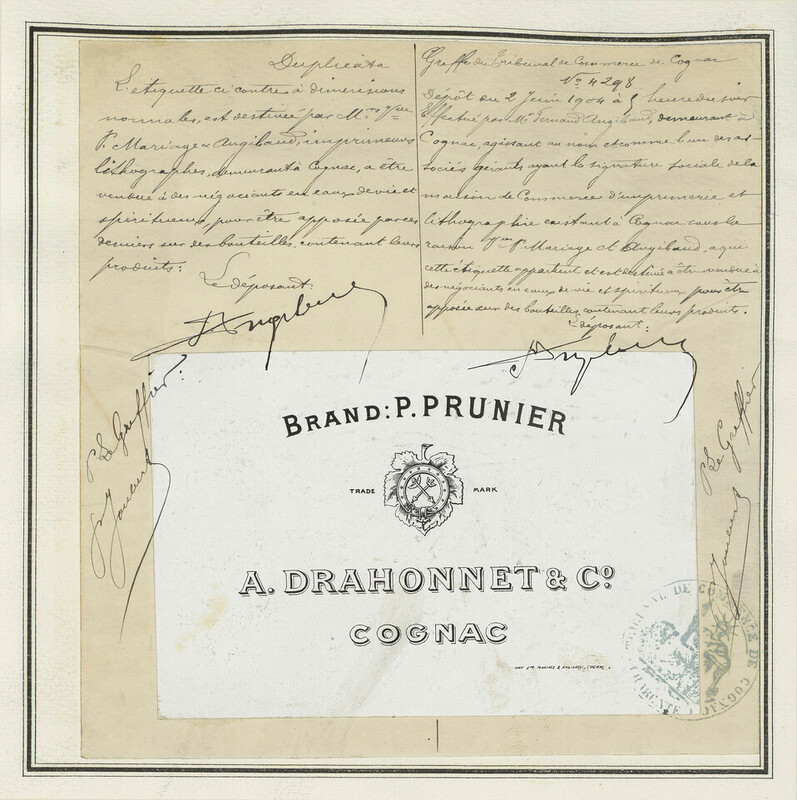 Duplicata
L'étiquette ci contre à dimensions
normales, est destinée par Mrs Vve
P. Mariage & Angibaud, imprimeurs
lithographes, demeurant à Cognac, a être
vendue à des négociants en eaux de vie et
spiritueux, pour être apposée par ces
derniers sur des bouteilles, contenant leurs
produits:
Le déposant:
Greffe du Tribunal de Commerce de Cognac
No 4298
Dépôt du 2 Juin 1904 à 5 heures du soir
Effectué par Mr Fernand Angibaud, demeurant à
Cognac, agissant au nom et comme l'un des as-
sociés gérants ayant la signature sociale de la
maison de Commerce d'imprimerie et
lithographie existant à Cognac sous la
raison Vve P. Mariage et Angibaud, a qui
cette étiquette appartient et est destinée à être vendue à
des négociants en eaux de vie et spiritueux pour être
apposée sur des bouteilles contenant leurs produits.
Le déposant:
P Le Greffier:
P Le Greffier
BRAND: P. PRUNIER
TRADE MARK
A. DRAHONNET & Co
COGNAC
IMP. Vve MARIAGE & ANGIBAUD, COGNAC.
TRIBUNAL DE COMMERCE DE COGNAC
CHARENTE